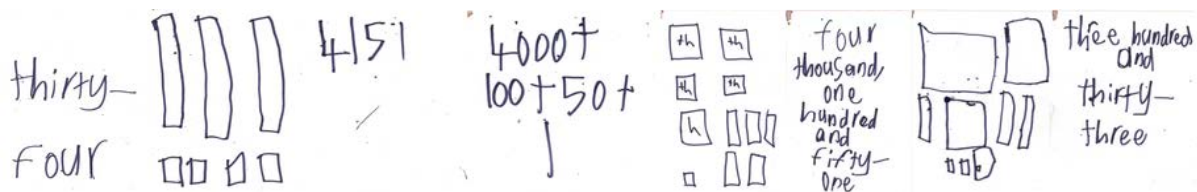 thirty-
four
4151
4000+
100+50+
1
th th
th th
h
four
thousand,
one
hundred
and
fifty-
one
three hundred
and
thirty-
three